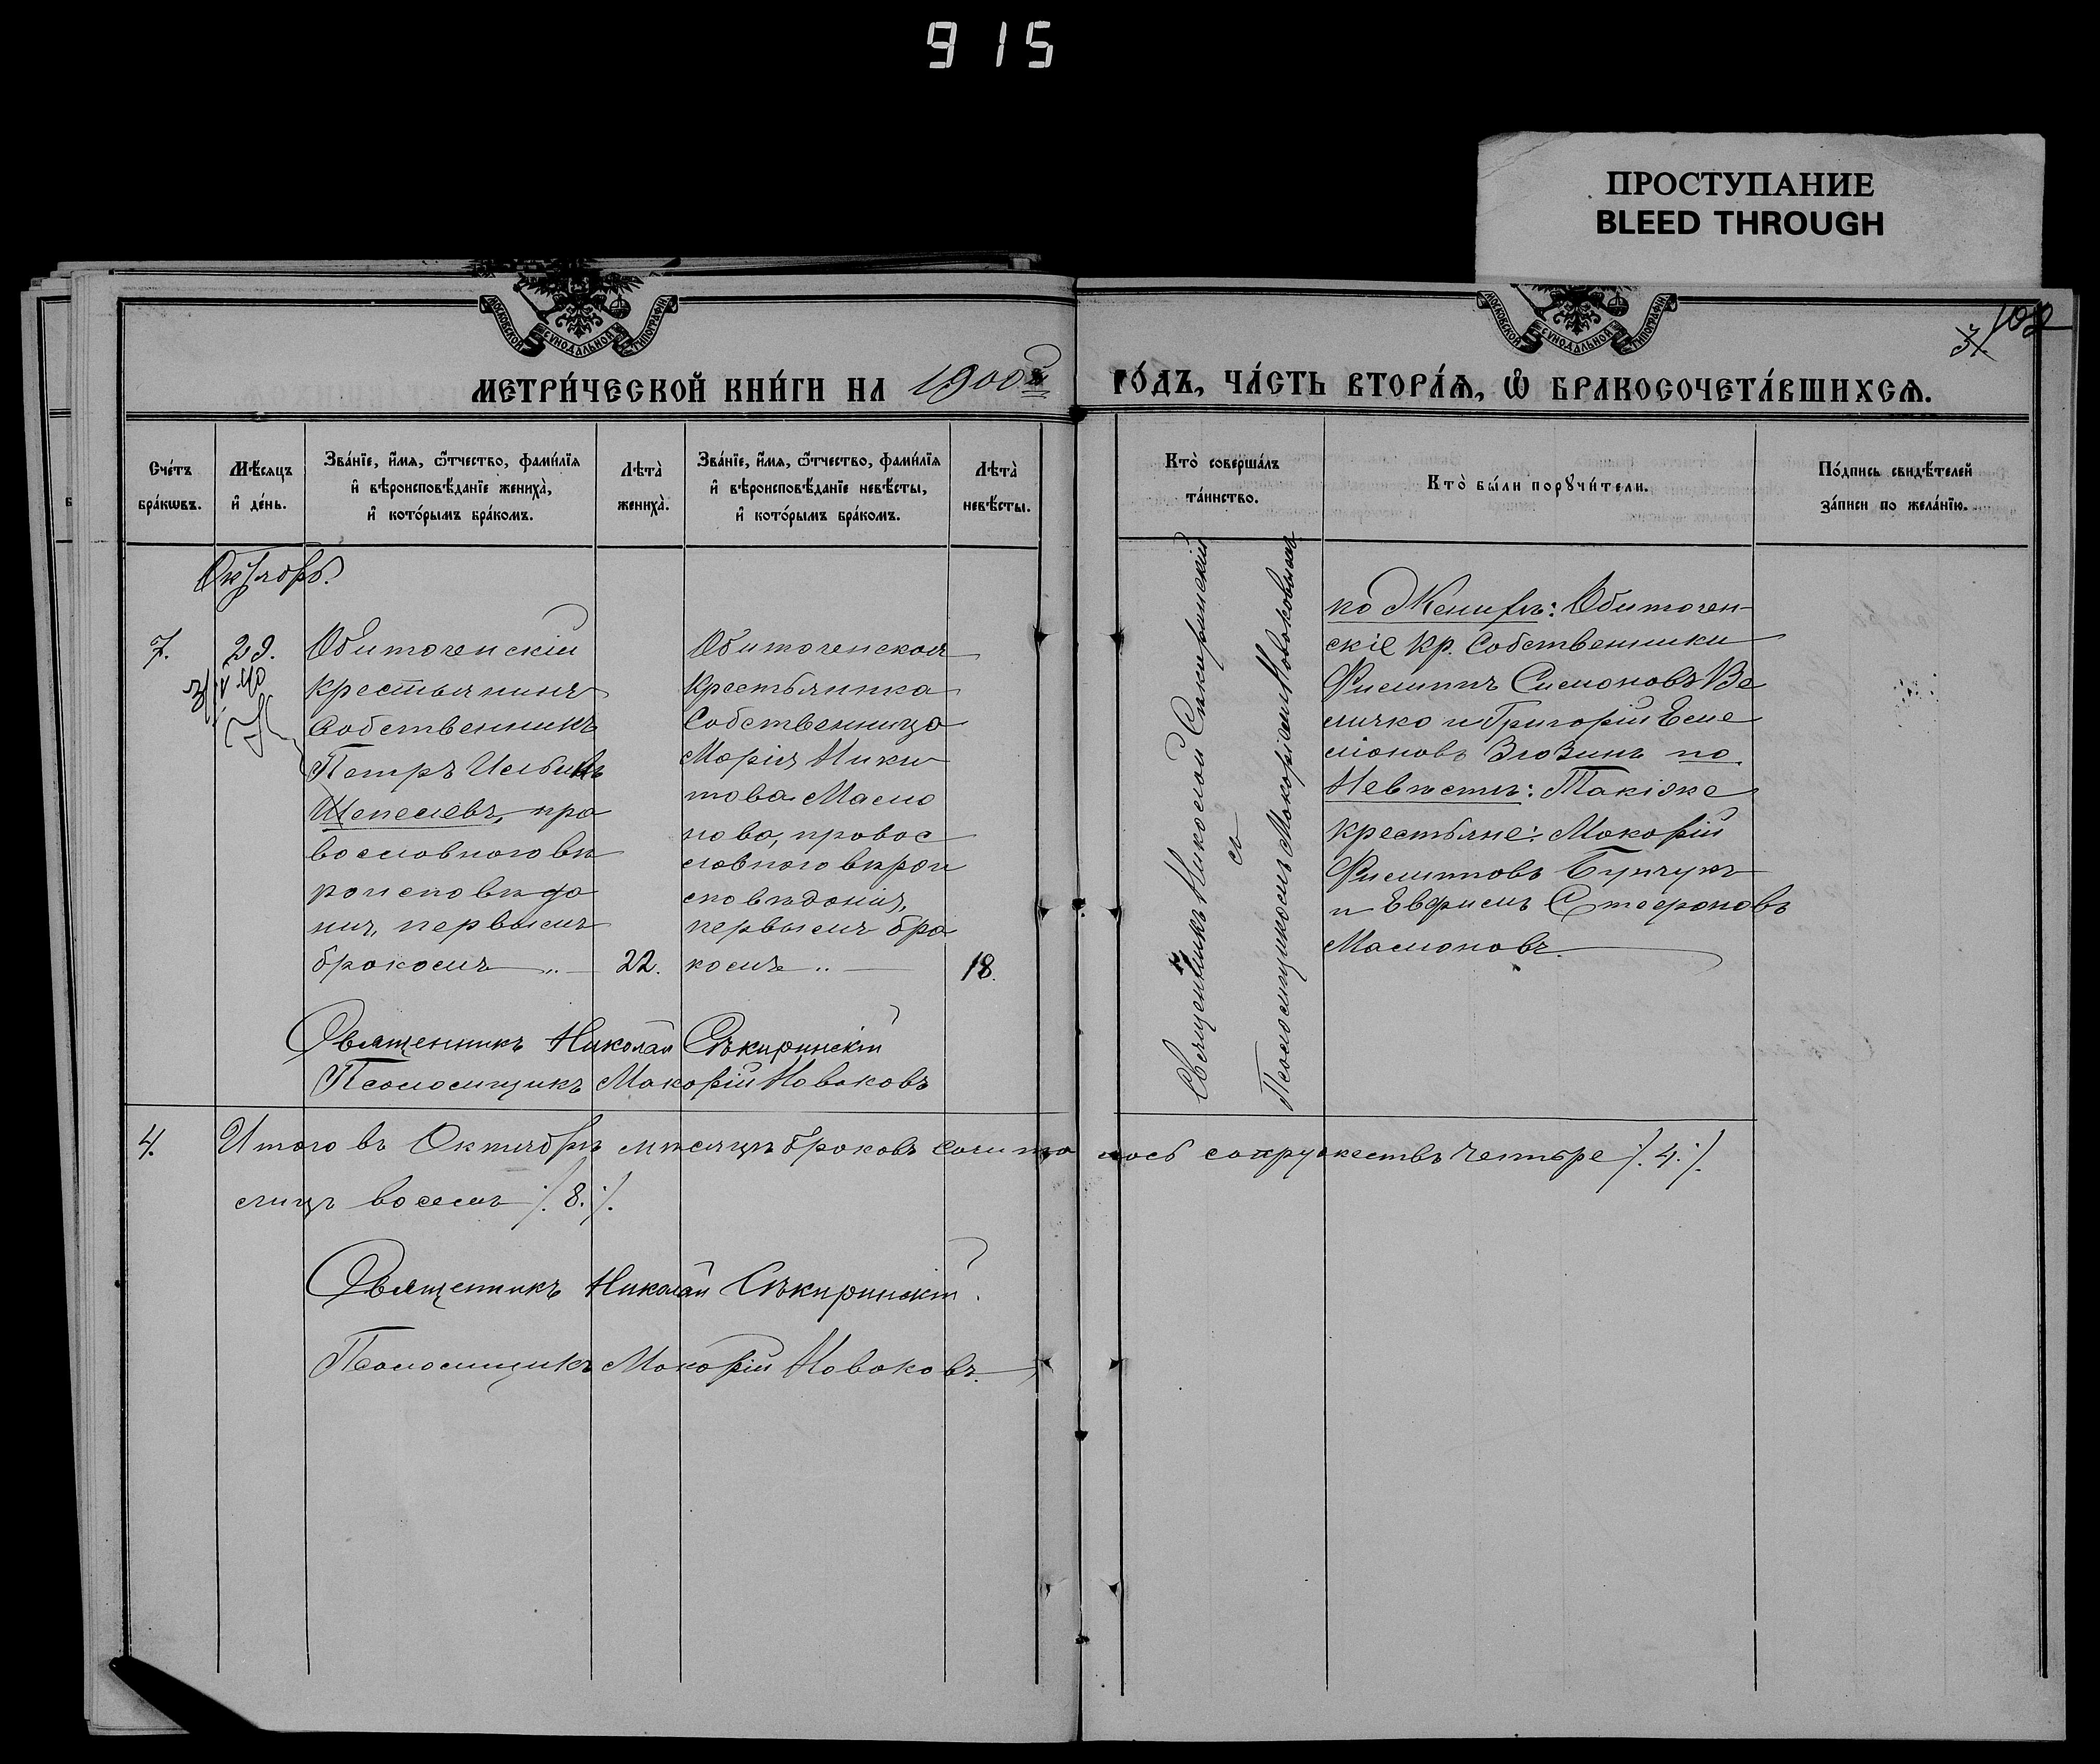 915
ПРОСТУПАНИЕ
BLEED THROUGH
МОСКОВСКОЙ СѴНОДАЛЬНОЙ ТИПОГРАФІИ
МОСКОВСКОЙ СѴНОДАЛЬНОЙ ТИПОГРАФІИ
102
МЕТРИ́ЧЕСКОЙ КНИ́ГИ НА 1900й
ГО́ДЪ, ЧА́СТЬ ВТОРА́Ѧ, Ѽ БРАКОСОЧЕТА́ВШИХСѦ.
Сче́тъ
бра́кωвъ.
Мѣ́сѧцъ
и҆ де́нь.
Зва́нїе, и҆́мѧ, ѻ҆́тчество, фами́лїѧ
и҆ вѣроисповѣ́данїе жениха̀,
и҆ кото́рымъ бра́комъ.
Лѣта̀
жениха̀.
Зва́нїе, и҆́мѧ, ѻ҆́тчество, фами́лїѧ
и҆ вѣроисповѣ́данїе невѣ́сты,
и҆ кото́рымъ бра́комъ.
Лѣта̀
невѣ́сты.
Кто̀ соверша́лъ
та́инство.
Кто̀ бы́ли порꙋчи́тели.
По́дпись свидѣ́телей
за́писи по жела́нїю.
Октябрь.
7.
29.
Обиточенскій
крестьянинъ
Собственникъ
Петръ Ильинъ
Шепелевъ, пра
вославнаго вѣ
роисповѣда
нія, первымъ
бракомъ
22.
Обиточенская
Крестьянка
Собственница
Марія Ники
това Мамо
нова, правос
лавнаго вѣрои
сповѣданія,
первымъ бра
комъ
18.
Священникъ Николай Сѣкиринскій
съ
Псаломщикомъ Макаріемъ Новаковымъ
по Женихѣ: Обиточен
скіе кр. Собственники
Филиппъ Симоновъ Ве
личко и Григорій Еме
ліановъ Зюзинъ по
Невѣстѣ: Такіже
крестьяне: Макарій
Филипповъ Бунчукъ
и Евфимъ Стаероновъ
Мамоновъ.
Священникъ Николай Сѣкиринскій
Псаломщикъ Макарій Новаковъ
4.
Итого въ Октябрѣ мѣсяцѣ браковъ сочита лось супружествъ четыре /.4./.
лицъ восемь /.8./.
Священникъ Николай Сѣкиринскій.
Псаломщикъ Макарій Новаковъ.